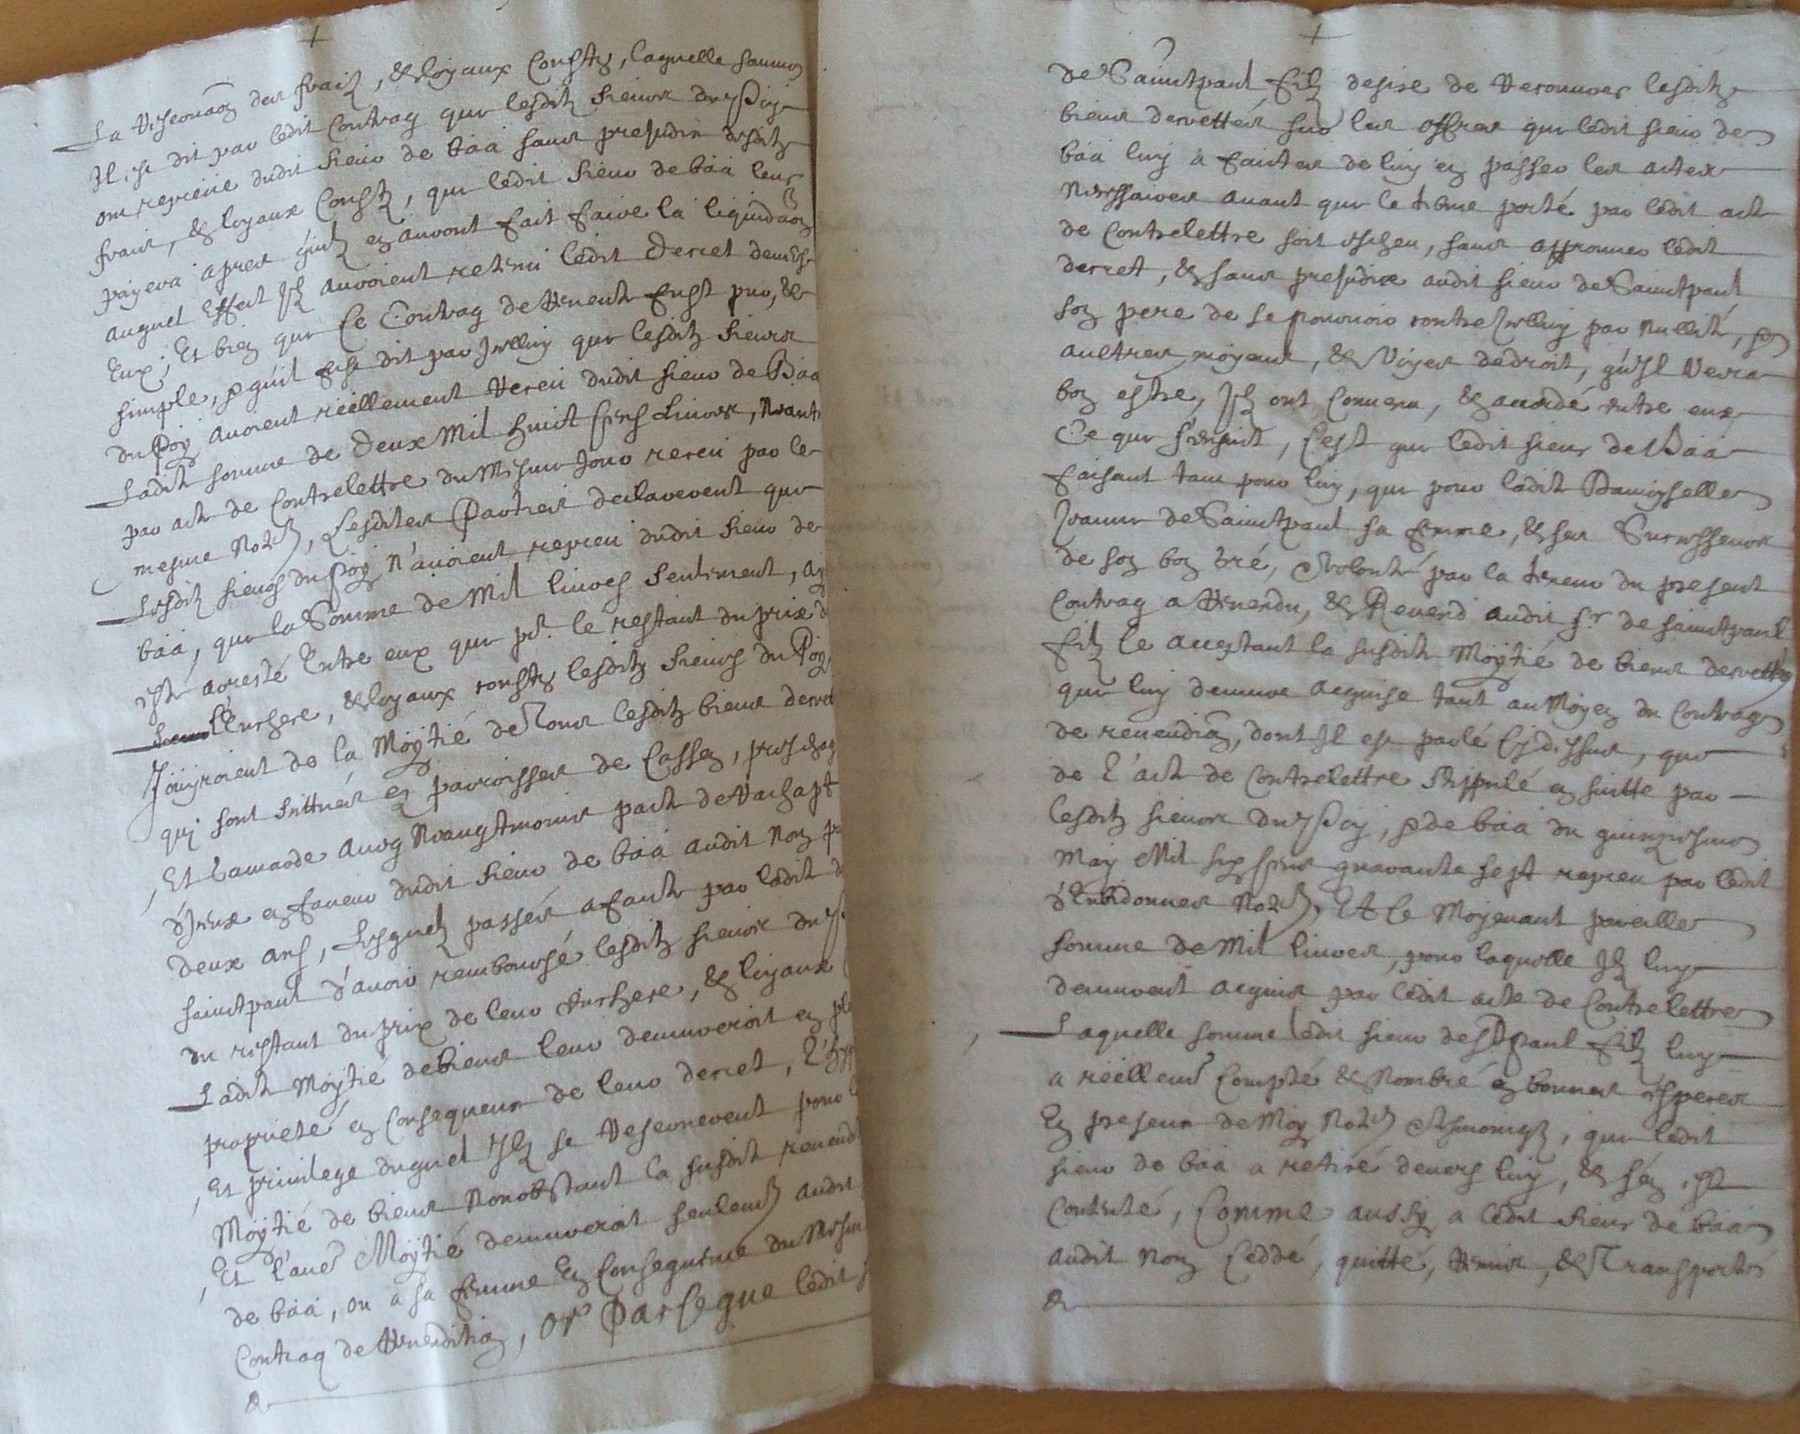 La reservaõn des fraiz, & loyaux coustz, laquelle somme
Il est dit par ledit Contrag que lesditz sieurs du Poy
ont repceue dudit sieur de baa sans prejudice desditz
frais, & loyaux Coustz, que ledit sieur de baa leur
payera apres qu'ilz en auront fait faire la liquidaõn
auquel effect Ilz auroient retenu ledit decret devers
Eux; Et bien que Ce Contrag de Vente fust pur, &
simple, & qu'il fust dit par Icelluy que lesditz sieurs
du Poy avoient reellement receu dudit sieur de Baa
Ladite somme de deux mil huict cens Livres, Neant
par acte de Contrelettre du mesme Jour receu par le
mesme Not.re, Lesdites Parties declarerent que
Lesditz sieurs du Poy n'avoient repceu dudit sieur de
baa, que la Somme de Mil livres seulement, ay
esté arresté Entre eux que pr. le restant du prix d
L'Enchere, & loyaux coustz lesditz sieurs du Poy
Jouyroient de la Moytié de Tous lesditz biens decret
qui sont sittués en parroisses de Cassen, 
Et Lamarde aveq Neangtmoins pacte de Rachapt
d'Iceux en faveur dudit sieur de baa audit Nom p
deux ans, Lesquelz passés a faute par ladite d
saintpaul d'avoir remboursé lesditz sieurs du P
du restant du prix de leur Enchere, & loyaux
Ladite Moytié de biens leur demureroit en pl
proprieté en Consequence de leur decret, l'hyp
Et privilege duquel Ilz se reserverent pour l
Moytié de biens Nonobstant la susdite revend
Et l'autre Moytié demureroit seulem.t audit
de baa, ou a sa femme En Consequence du Mesme
Contraq de Vendition, or Parceque ledit s
de Saintpaul filz desire de recouvrer lesditz
biens decrettés sur les offres que ledit sieur de
baa luy a faites de luy en passer les actes
Necessaires avant que le terme porté par ledit acte
de Contrelettre soit escheu, sans approuver ledit
decret, & sans prejudice audit sieur de Saintpaul
son pere de se pourvoir contre Icelluy par nullité, &
aultres moyens, & Voyes de droit, qu'Il Verra
bon estre, Ilz ont Convenu, & accordé entre eux
Ce que s'ensuit, C'est que ledit sieur de Baa
faisant tant pour luy, que pour ladite Damoyselle
Jeanne de Saintpaul sa femme, & ses Successeurs
de son bon gré, & volonté par la teneur du present
Contrag a Vendu, & Revend audit s.r de saintpaul
filz le acceptant la susdite Moytié de biens decrettés
que luy demure acquise tant au Moyen du Contrag
de revendiõn, dont Il est parlé Cy dessus, que
de l'acte de Contrelettre stippulé en suitte par
lesditz sieurs du Poy, & de baa du quinziesme
May Mil six cens quarante sept repceu par ledit
 Not.re, Et Ce Moyenant pareille
somme de Mil livres, pour laquelle Ilz luy
demurent acquis par ledit acte de Contrelettre
Laquelle somme ledit sieur de S.tPaul filz luy
a reellem.t Compté & Nombré en bonnes especes
En presence de Moy Not.re & tesmoingz, que ledit
sieur de baa a retiré devers luy, & s'en est
Contenté, Comme aussy a ledit sieur de baa
audit Nom Ceddé, quitté, remis, & Transporté